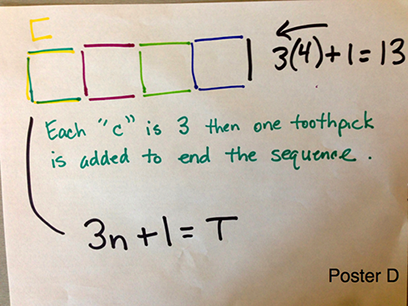 C
3(4)+1=13
Each "c" is 3 then one toothpick
is added to end the sequence.
3n+1=T
Poster D